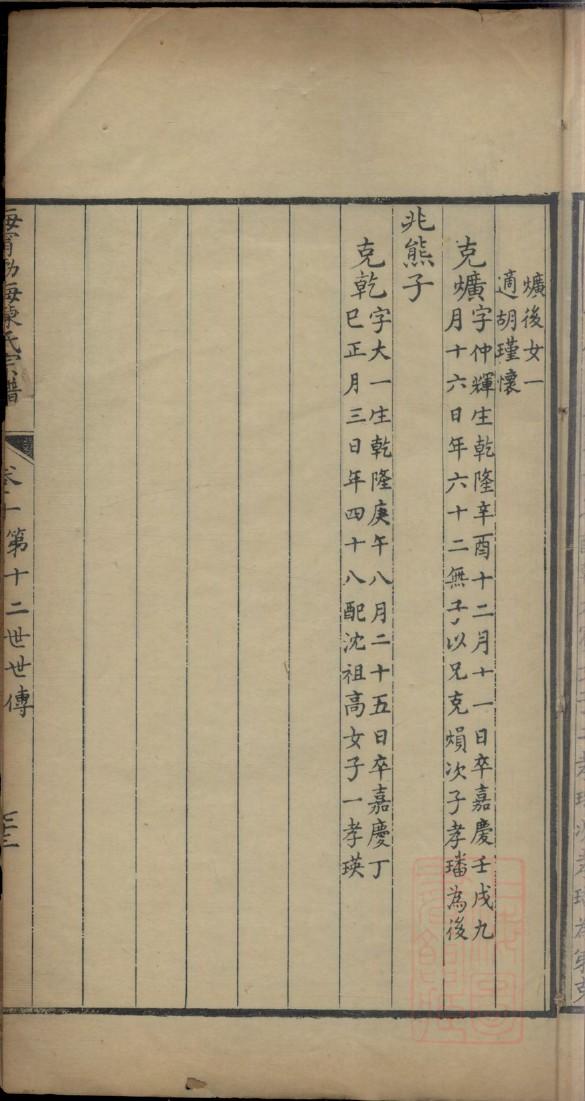 爌後女一
適胡瑾懷
克爌字仲輝生乾隆辛酉十二月十一日卒嘉慶壬戌九
月十六日年六十二無子以兄克熉次子孝璠為後
兆熊子
克乾字大一生乾隆庚午八月二十五日卒嘉慶丁
巳正月三日年四十八配沈祖高女子一孝瑛
海寧渤海陳氏宗譜
第十二世世傳